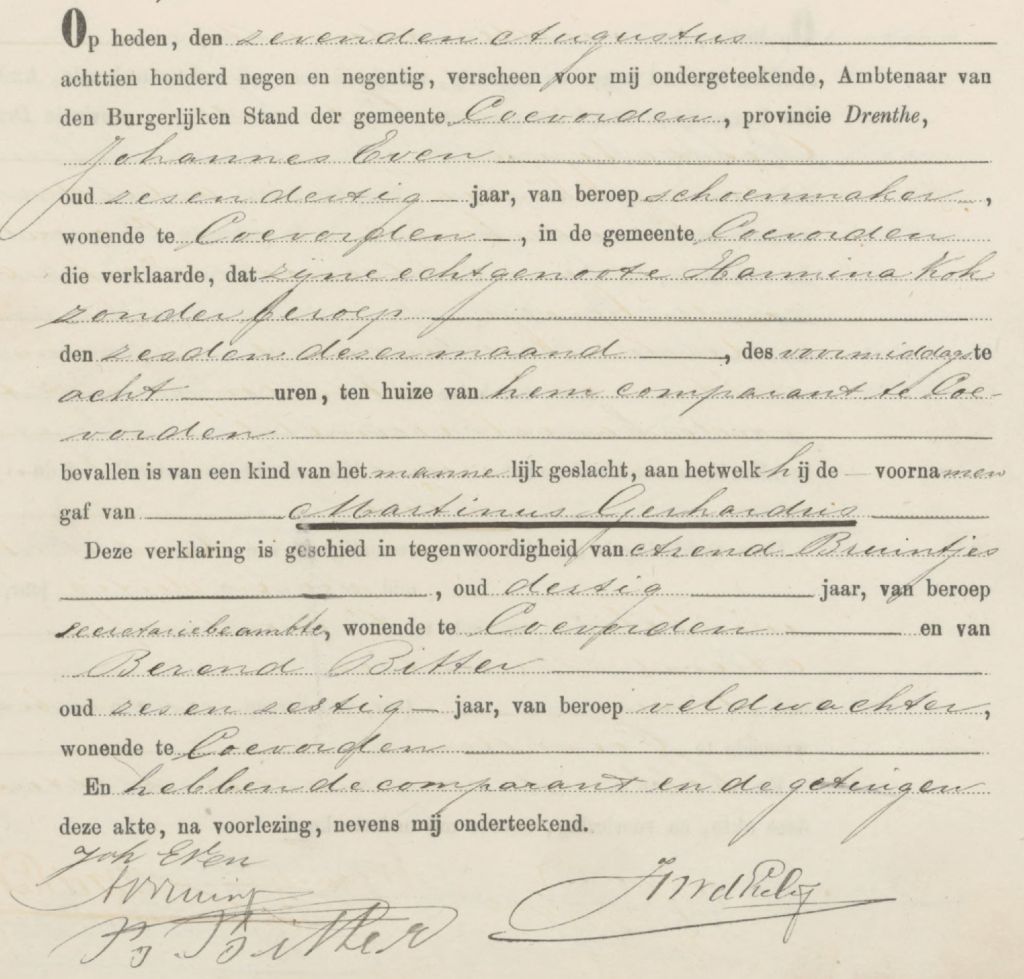 Op heden, den zevenden Augustus
achttien honderd negen en negentig, verscheen voor mij ondergeteekende, Ambtenaar van
den Burgerlijken Stand der gemeente Coevorden, provincie Drenthe,
Johannes Even
oud zes en dertig jaar, van beroep schoenmaker,
wonende te Coevorden, in de gemeente Coevorden
die verklaarde, dat zijne echtgenoote Harmina Kok
zonder beroep
den zesden dezer maand, des voormiddags te
acht uren, ten huize van hem comparant te Coe-
vorden
bevallen is van een kind van het mannelijk geslacht, aan hetwelk hij de voornamen
gaf van Martinus Gerhardus
Deze verklaring is geschied in tegenwoordigheid van Arend Bruintjes
, oud dertig jaar, van beroep
secretariebeambte, wonende te Coevorden en van
Berend Bitter
oud zes en zestig jaar, van beroep veldwachter,
wonende te Coevorden
En hebben de comparant en de getuigen
deze akte, na voorlezing, nevens mij onderteekend.
Joh Even
B. Bitter